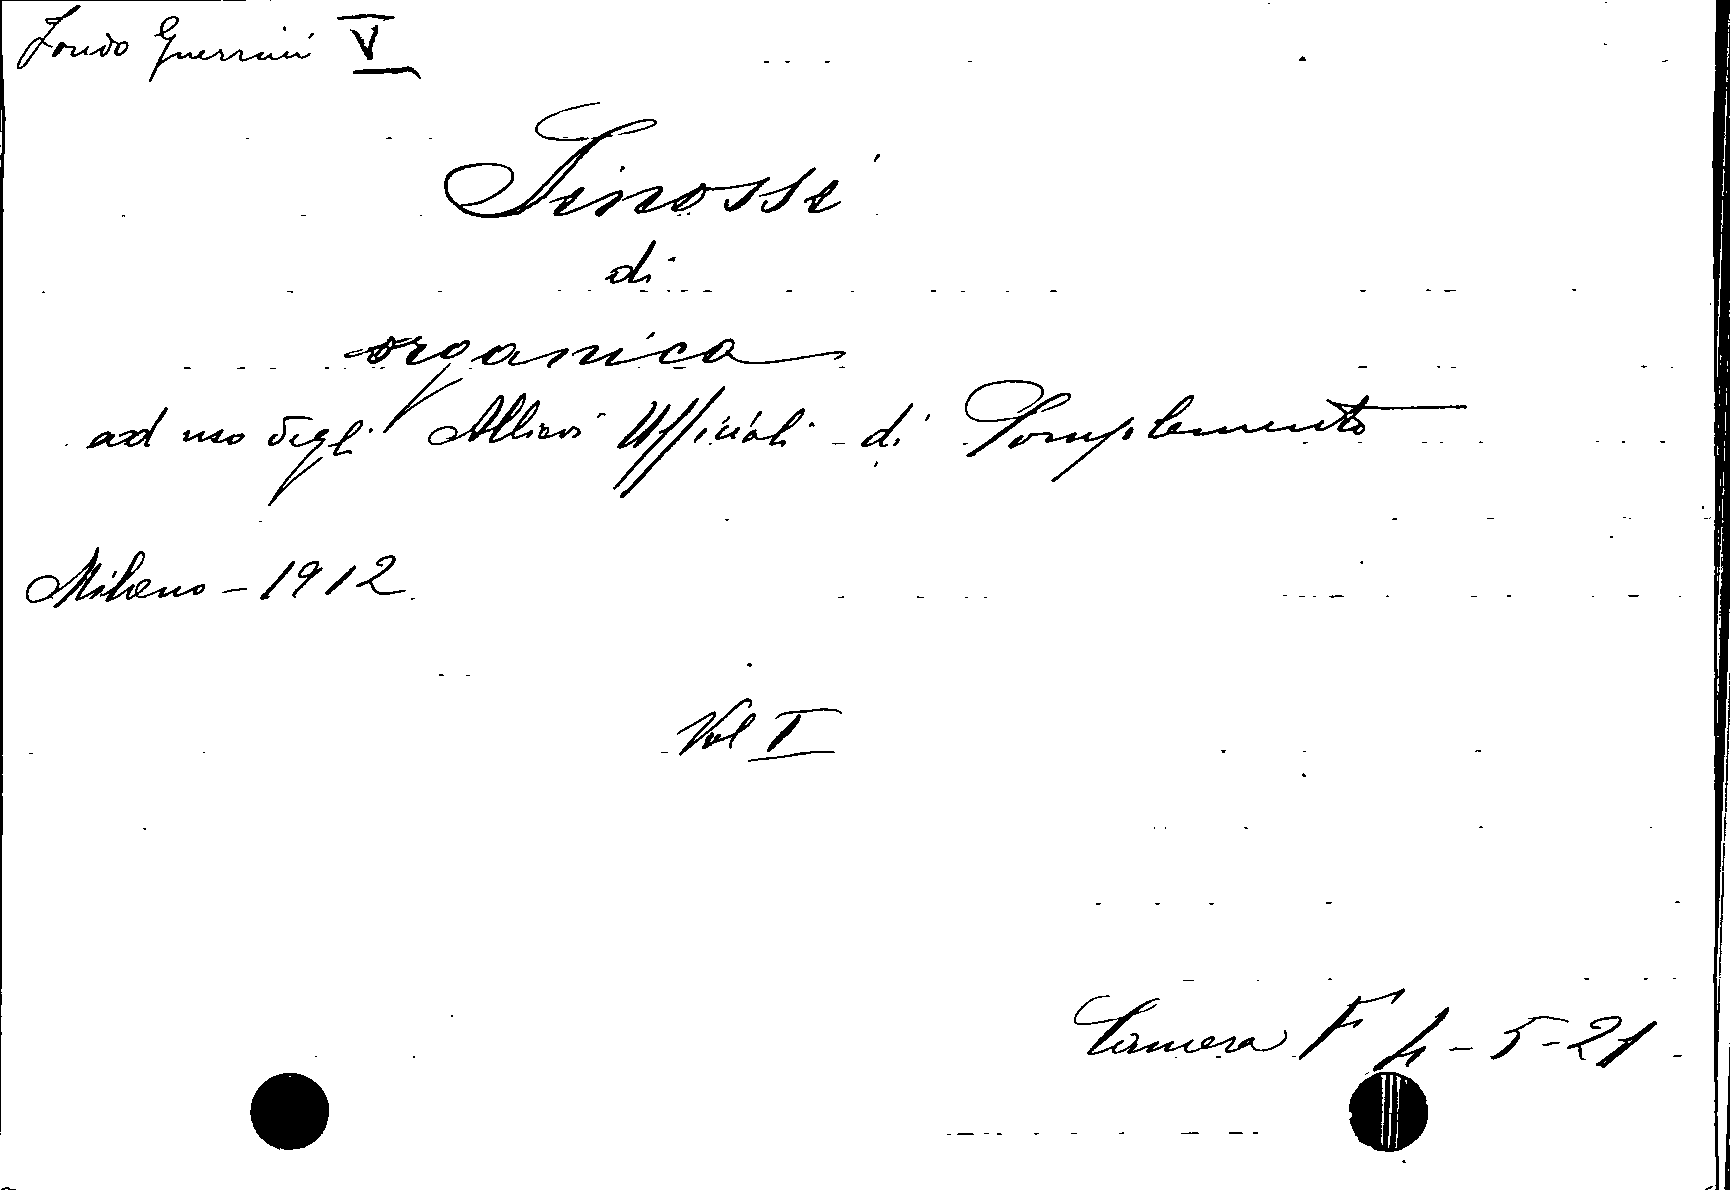 Fondo Guerrini V
Sinossi
di
organica
ad uso degli Allievi Ufficiali di Complemento
Milano - 1912
Vol I
Camera F 4-5-21